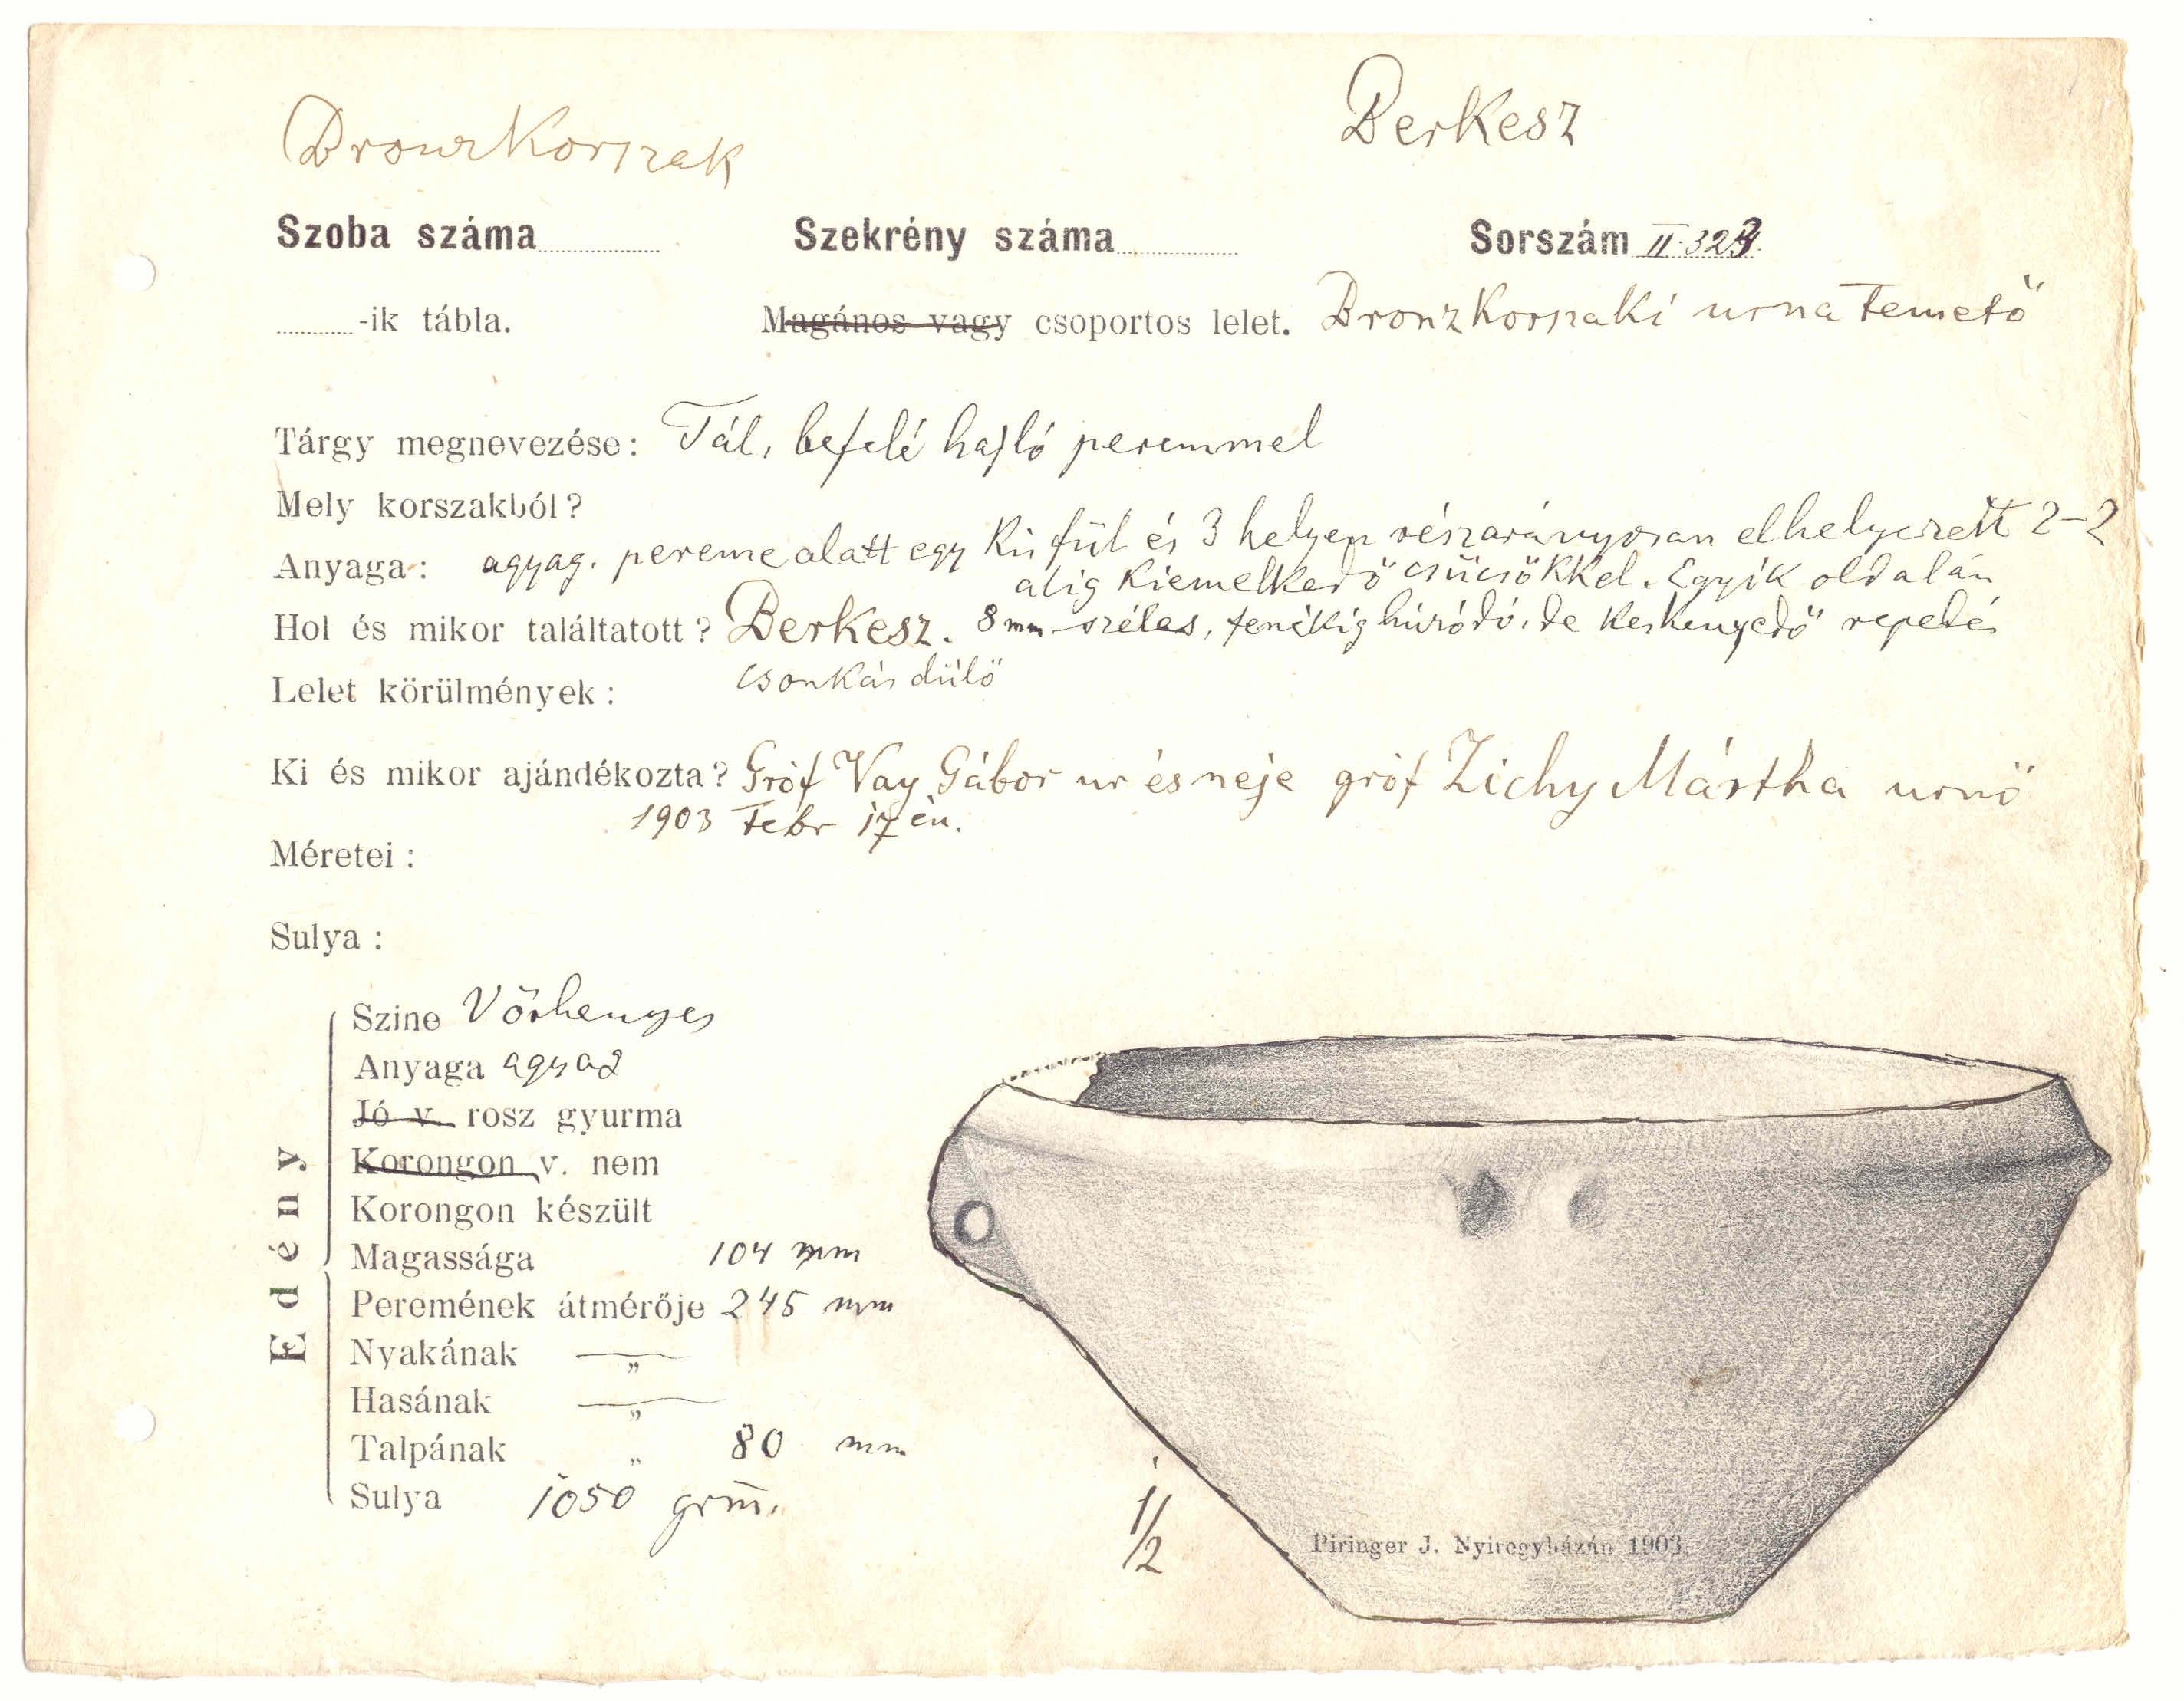 Bronzkorszak
Berkesz
Szoba száma
Szekrény száma
Sorszám II. 323.
-ik tábla.
Magános vagy csoportos lelet. Bronzkorszaki urna temető
Tárgy megnevezése: Tál, befelé hajló peremmel
Mely korszakból?
Anyaga: agyag. pereme alatt egy kis fül és 3 helyen részarányosan elhelyezett 2-2
alig kiemelkedő csücsökkel. Egyik oldalán
Hol és mikor találtatott? Berkesz. 8 mm széles, fenékig húzódó, de keskenyedő repedés
Csonkás dülő
Lelet körülmények:
Ki és mikor ajándékozta? Gróf Vay Gábor ur és neje gróf Zichy Mártha urnő
1903 Febr 17 én.
Méretei:
Sulya:
Edény
Szine Vörhenyes
Anyaga agyag
Jó v. rosz gyurma
Korongon v. nem
Korongon készült
Magassága 104 mm
Peremének átmérője 245 mm
Nyakának „ —
Hasának „ —
Talpának „ 80 mm
Sulya 1050 grm.
1/2
Piringer J. Nyiregyházán 1903.